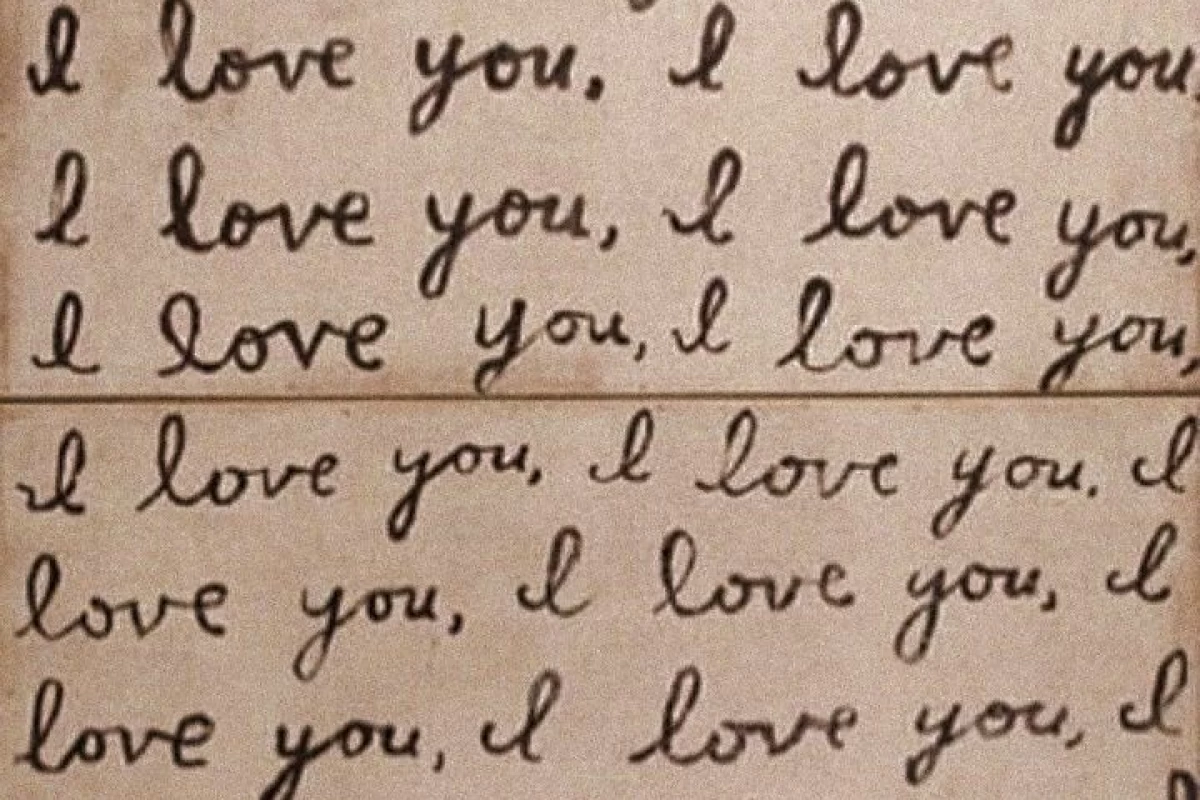 I love you, I love you,
I love you, I love you,
I love you, I love you,
I love you, I love you, I
love you, I love you, I
love you, I love you, I